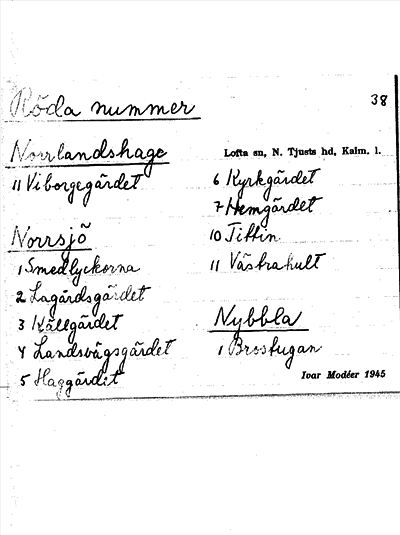 Röda nummer
38
Norrlandshage
11 Viborgegärdet
Norrsjö
1 Smedlyckorna
2 Lagårdsgärdet
3 Källgärdet
4 Landsvägsgärdet
5 Haggärdet
Lofta sn, N. Tjusts hd, Kalm. l.
6 Kyrkgärdet
7 Hemgärdet
10 Tittin
11 Västrahult
Nybbla
1 Brostugan
Ivar Modéer 1945